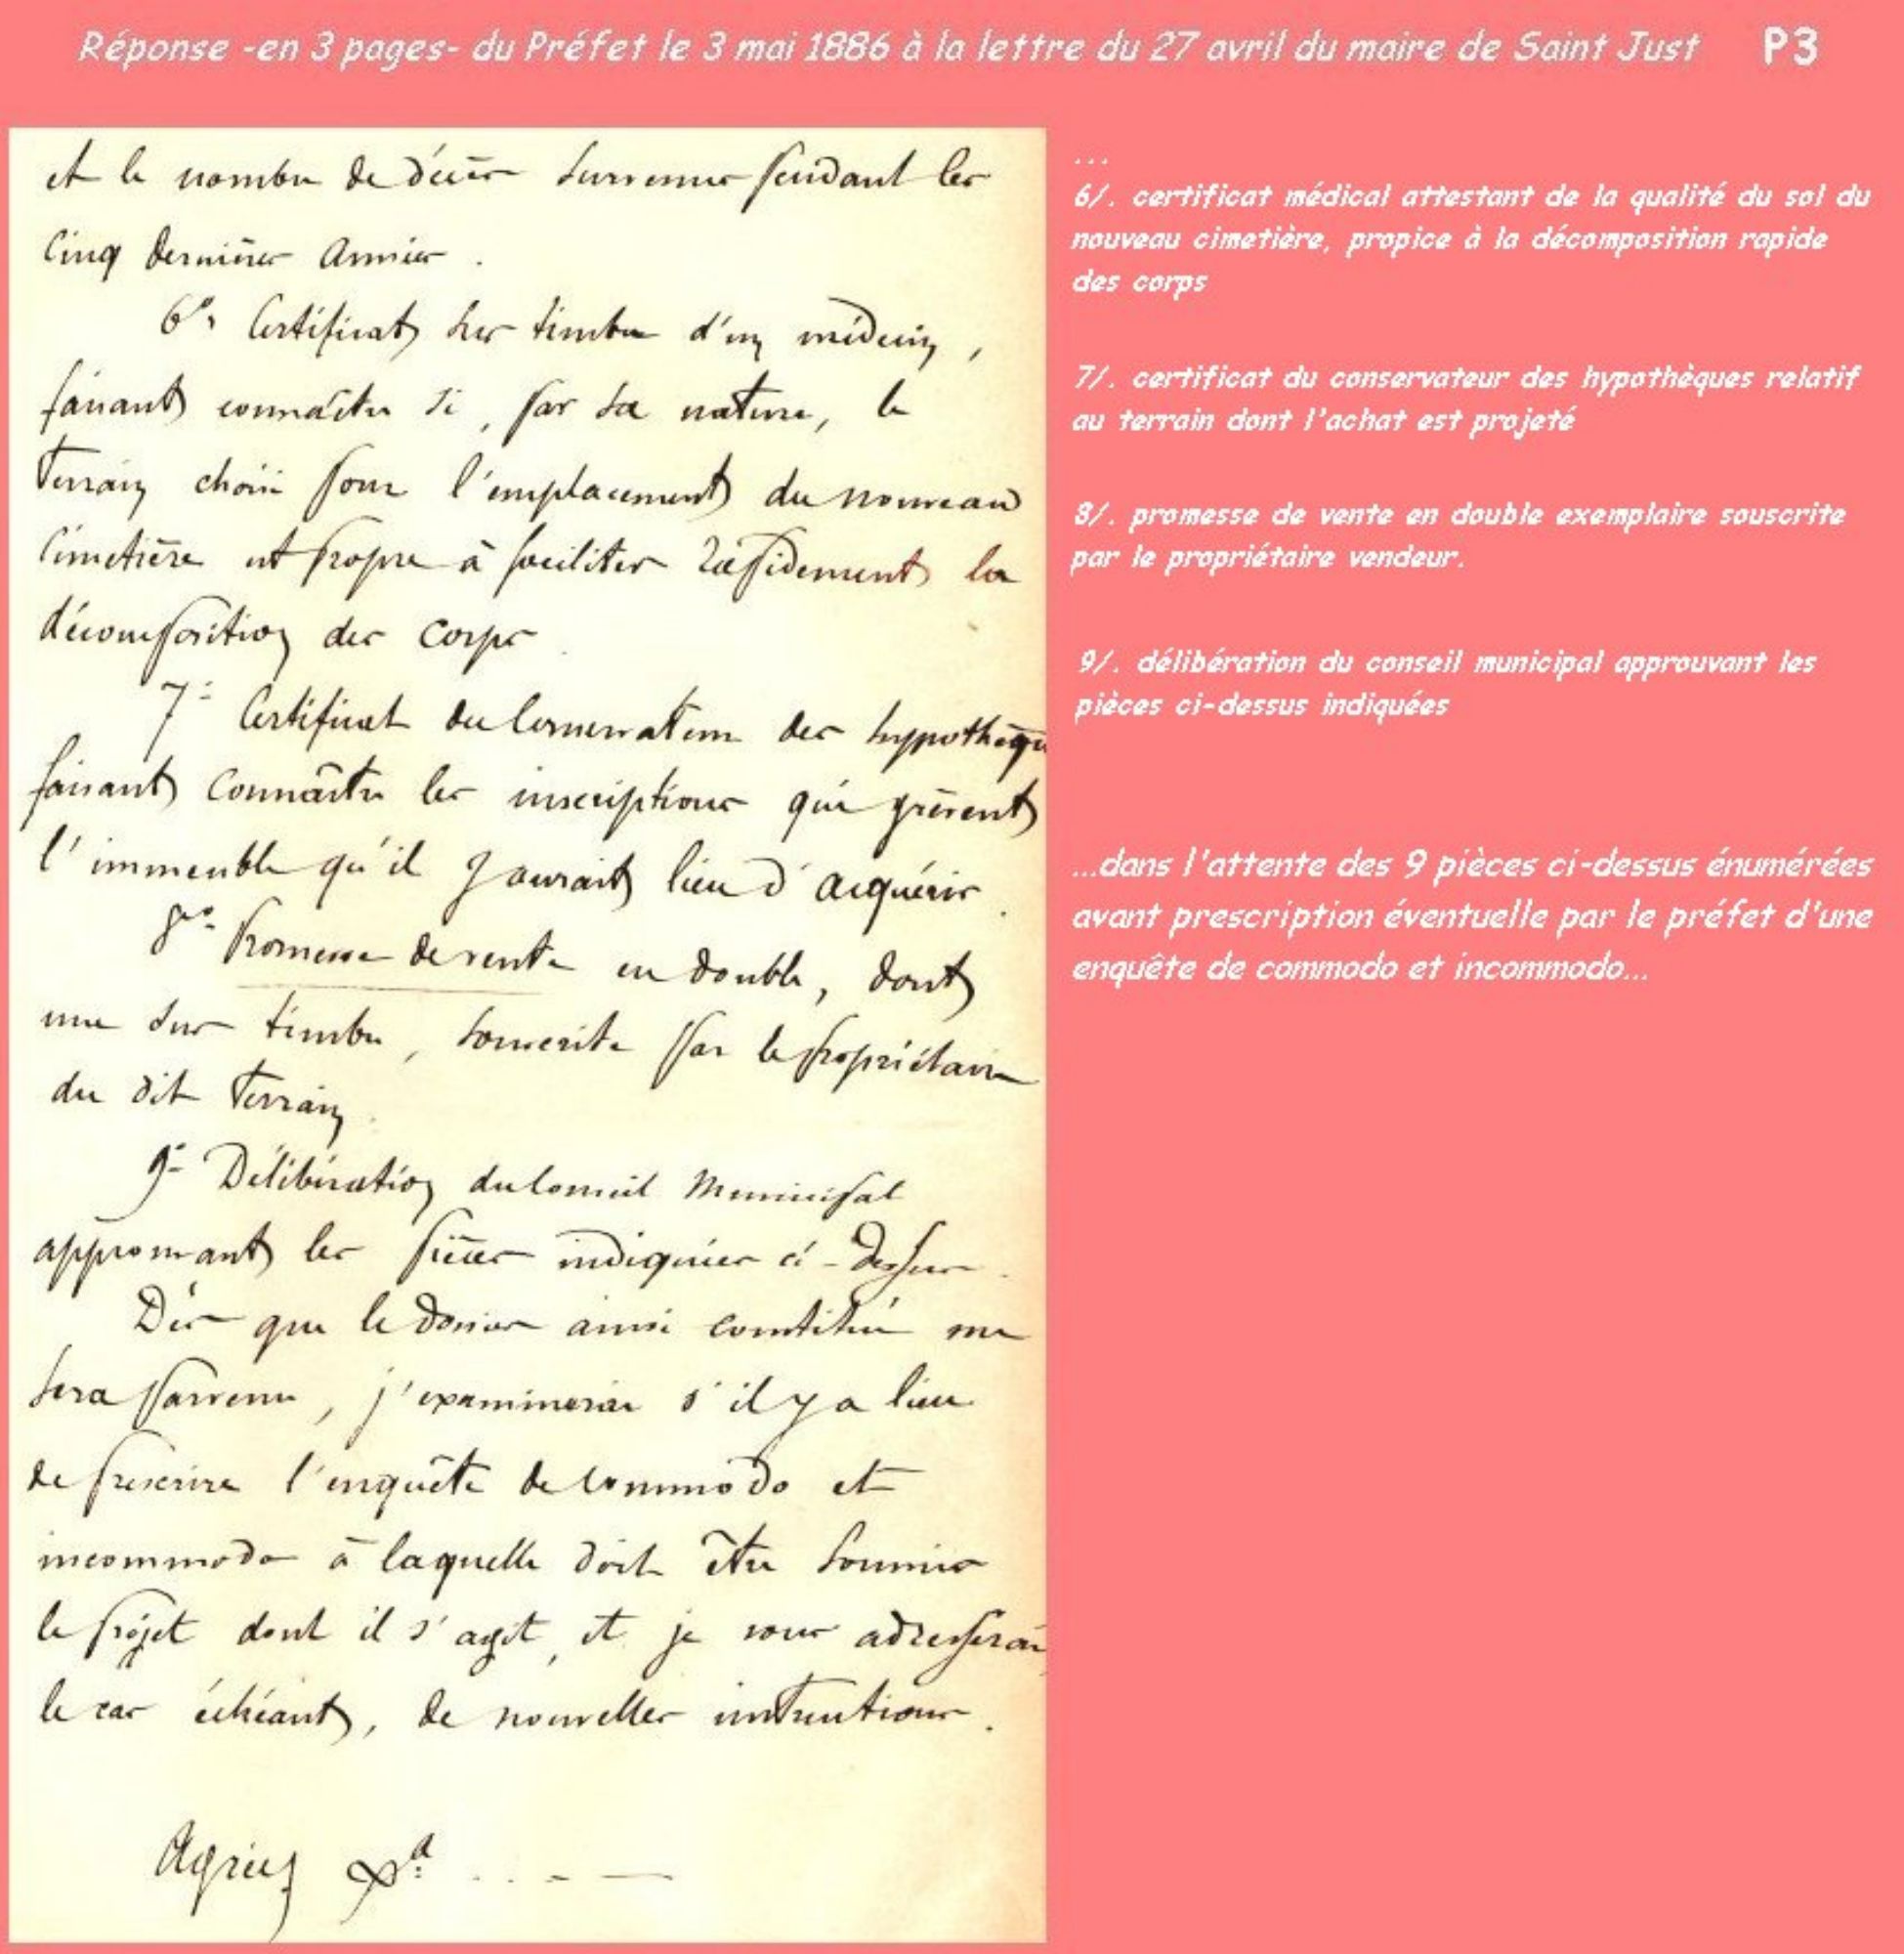 Réponse -en 3 pages- du Préfet le 3 mai 1886 à la lettre du 27 avril du maire de Saint Just P3
et le nombre de décès survenus pendant les
cinq dernières années.
6º, Certificat sur timbre d'un médecin,
faisant connaître si, par sa nature, le
terrain choisi pour l'emplacement du nouveau
cimetière est propre à faciliter rapidement la
décomposition des corps.
7º Certificat du Conservateur des hypothèqu
faisant connaître les inscriptions qui grèvent
l'immeuble qu'il y aurait lieu d'acquérir.
8º Promesse de vente en double, dont
une sur timbre, souscrite par le propriétaire
du dit terrain.
9º Délibération du Conseil Municipal
approuvant les pièces indiquées ci-dessus.
Dès que le dossier ainsi constitué me
sera parvenu, j'examinerai s'il y a lieu
de prescrire l'enquête de Commodo et
incommodo à laquelle doit être soumis
le projet dont il s'agit, et je vous adresserai
le cas échéant, de nouvelles instructions.
Agréez
...
6/. certificat médical attestant de la qualité du sol du
nouveau cimetière, propice à la décomposition rapide
des corps
7/. certificat du conservateur des hypothèques relatif
au terrain dont l'achat est projeté
8/. promesse de vente en double exemplaire souscrite
par le propriétaire vendeur.
9/. délibération du conseil municipal approuvant les
pièces ci-dessus indiquées
...dans l'attente des 9 pièces ci-dessus énumérées
avant prescription éventuelle par le préfet d'une
enquête de commodo et incommodo...